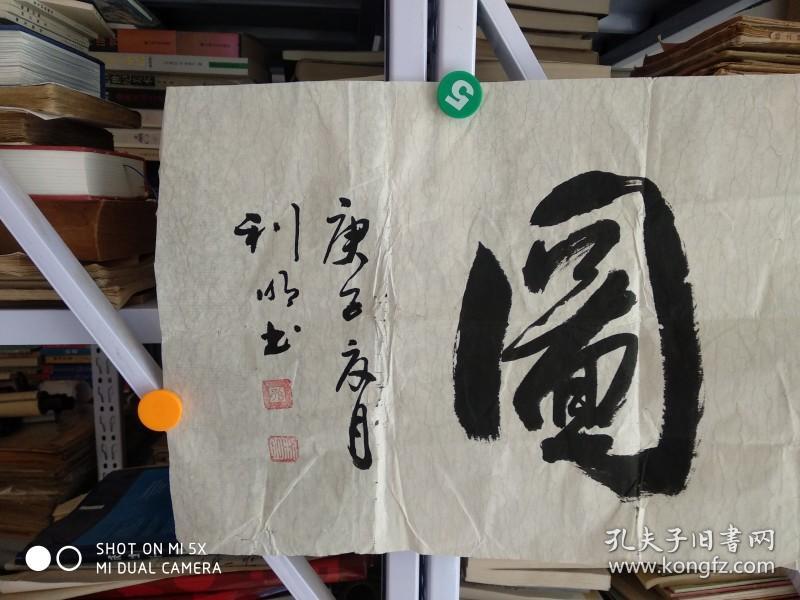 圖
庚夏月
利明书
5
SHOT ON MI 5X
MI DUAL CAMERA
孔夫子旧書网
www.kongfz.com